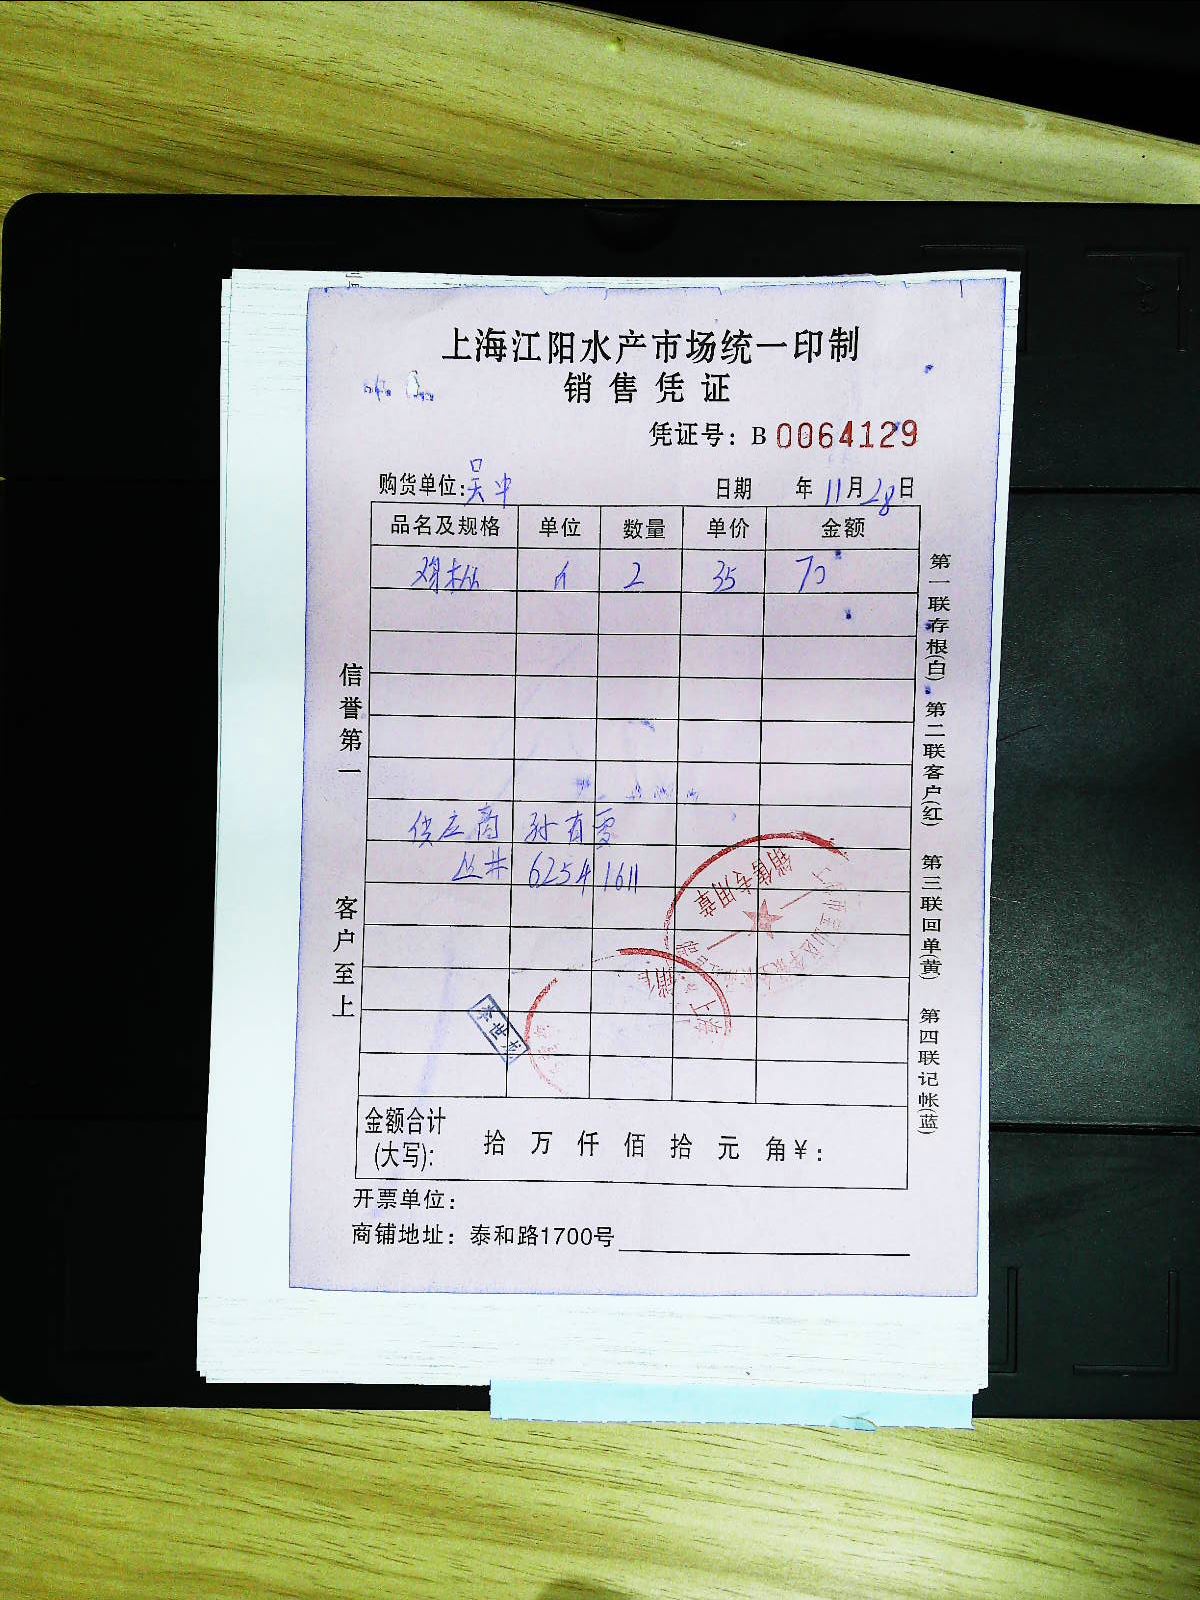 上海江阳水产市场统一印制
销售凭证
凭证号：B 0064129
购货单位：吴中 日期 年 11月28日
品名及规格 单位 数量 单价 金额
2 35 70
供应商 孙有雯
6254 1611
信誉第一
客户至上
第一联存根(白) 第二联客户(红) 第三联回单(黄) 第四联记帐(蓝)
销售专用章
李世龙
金额合计(大写)： 拾 万 仟 佰 拾 元 角 ¥：
开票单位：
商铺地址：泰和路1700号